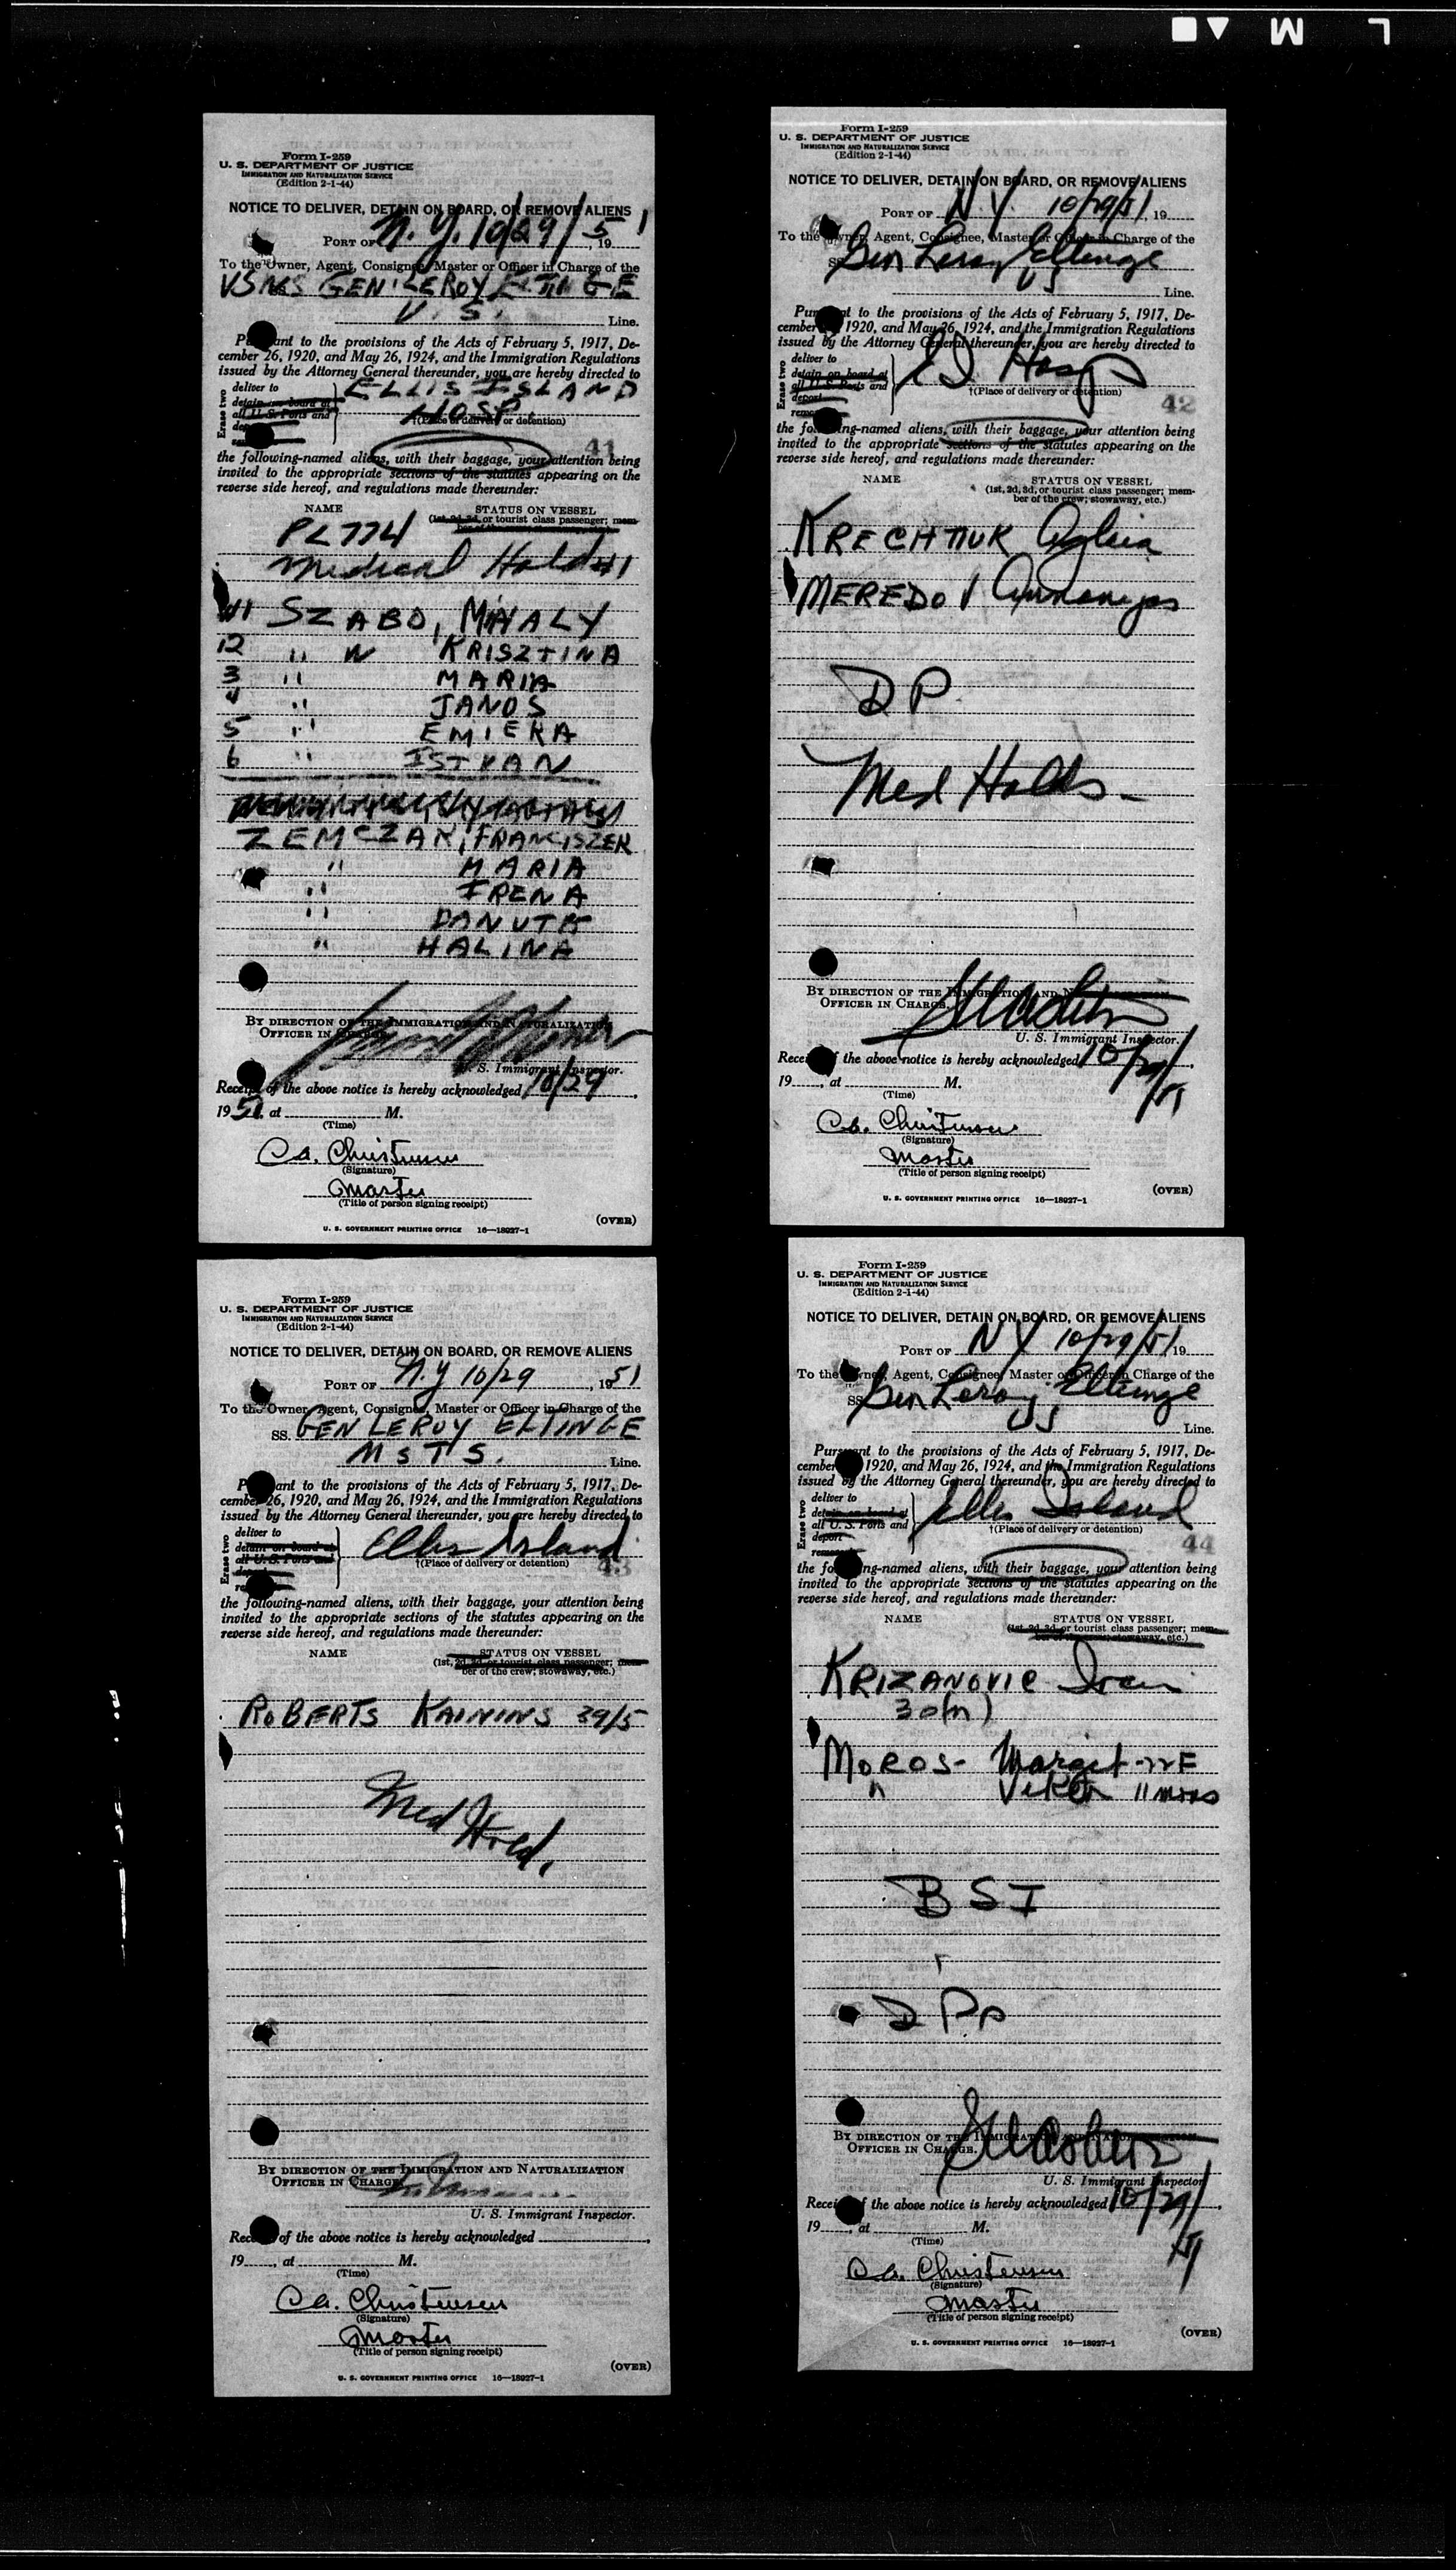 L M
Form I-259
U. S. DEPARTMENT OF JUSTICE
IMMIGRATION AND NATURALIZATION SERVICE
(Edition 2-1-44)
NOTICE TO DELIVER, DETAIN ON BOARD, OR REMOVE ALIENS
PORT OF N.Y. 10/29/51, 19
To the Owner, Agent, Consignee, Master or Officer in Charge of the
USNS GEN'LEROY ELTINGE
U. S. Line.
Pursuant to the provisions of the Acts of February 5, 1917, De-
cember 26, 1920, and May 26, 1924, and the Immigration Regulations
issued by the Attorney General thereunder, you are hereby directed to
Erase two
deliver to
detain on board at
all U. S. Ports and
ELLIS ISLAND
HOSP
†(Place of delivery or detention)
41
the following-named aliens, with their baggage, your attention being
invited to the appropriate sections of the statutes appearing on the
reverse side hereof, and regulations made thereunder:
NAME STATUS ON VESSEL
(1st, 2d, 3d, or tourist class passenger; mem-
ber of the crew; stowaway, etc.)
PL 774
Medical Hold
SZABO, MIHALY
2 " W KRISZTINA
3 " MARIA
4 " JANOS
5 " EMIEKA
6 " ISTVAN
ZEMCZAK, FRANCISZEK
" MARIA
" IRENA
" DANUTA
" HALINA
BY DIRECTION OF THE IMMIGRATION AND NATURALIZATION
OFFICER IN CHARGE.
U. S. Immigrant Inspector.
Receipt of the above notice is hereby acknowledged 10/29,
1951, at M.
(Time)
Ca. Christensen
(Signature)
Master
(Title of person signing receipt)
(OVER)
U. S. GOVERNMENT PRINTING OFFICE 16—18027-1
Form I-259
U. S. DEPARTMENT OF JUSTICE
IMMIGRATION AND NATURALIZATION SERVICE
(Edition 2-1-44)
NOTICE TO DELIVER, DETAIN ON BOARD, OR REMOVE ALIENS
PORT OF N.Y. 10/29/51, 19
To the Owner, Agent, Consignee, Master or Officer in Charge of the
SS. Gen Leroy Eltinge
US Line.
Pursuant to the provisions of the Acts of February 5, 1917, De-
cember 26, 1920, and May 26, 1924, and the Immigration Regulations
issued by the Attorney General thereunder, you are hereby directed to
Erase two
deliver to
detain on board at
all U. S. Ports and
deport
EI Hosp
†(Place of delivery or detention)
42
the following-named aliens, with their baggage, your attention being
invited to the appropriate sections of the statutes appearing on the
reverse side hereof, and regulations made thereunder:
NAME STATUS ON VESSEL
(1st, 2d, 3d, or tourist class passenger; mem-
ber of the crew; stowaway, etc.)
KRECHTIUK
MEREDOV
DP
Med Holds
BY DIRECTION OF THE IMMIGRATION AND NATURALIZATION
OFFICER IN CHARGE.
U. S. Immigrant Inspector.
Receipt of the above notice is hereby acknowledged 10/29/51
19, at M.
(Time)
Ca. Christensen
(Signature)
Master
(Title of person signing receipt)
(OVER)
U. S. GOVERNMENT PRINTING OFFICE 16—18027-1
Form I-259
U. S. DEPARTMENT OF JUSTICE
IMMIGRATION AND NATURALIZATION SERVICE
(Edition 2-1-44)
NOTICE TO DELIVER, DETAIN ON BOARD, OR REMOVE ALIENS
PORT OF N.Y 10/29, 1951
To the Owner, Agent, Consignee, Master or Officer in Charge of the
SS. GEN LEROY ELTINGE
MSTS. Line.
Pursuant to the provisions of the Acts of February 5, 1917, De-
cember 26, 1920, and May 26, 1924, and the Immigration Regulations
issued by the Attorney General thereunder, you are hereby directed to
Erase two
deliver to
detain on board at
all U. S. Ports and
Ellis Island
†(Place of delivery or detention)
43
the following-named aliens, with their baggage, your attention being
invited to the appropriate sections of the statutes appearing on the
reverse side hereof, and regulations made thereunder:
NAME STATUS ON VESSEL
(1st, 2d, 3d, or tourist class passenger; mem-
ber of the crew; stowaway, etc.)
ROBERTS KAININS 39/5
Med Hold.
BY DIRECTION OF THE IMMIGRATION AND NATURALIZATION
OFFICER IN CHARGE.
U. S. Immigrant Inspector.
Receipt of the above notice is hereby acknowledged,
19, at M.
(Time)
Ca. Christensen
(Signature)
Master
(Title of person signing receipt)
(OVER)
U. S. GOVERNMENT PRINTING OFFICE 16—18027-1
Form I-259
U. S. DEPARTMENT OF JUSTICE
IMMIGRATION AND NATURALIZATION SERVICE
(Edition 2-1-44)
NOTICE TO DELIVER, DETAIN ON BOARD, OR REMOVE ALIENS
PORT OF NY 10/29/51, 19
To the Owner, Agent, Consignee, Master or Officer in Charge of the
SS. Gen Leroy Eltinge
US Line.
Pursuant to the provisions of the Acts of February 5, 1917, De-
cember 26, 1920, and May 26, 1924, and the Immigration Regulations
issued by the Attorney General thereunder, you are hereby directed to
Erase two
deliver to
detain on board at
all U. S. Ports and
deport
Ellis Island
†(Place of delivery or detention)
44
the following-named aliens, with their baggage, your attention being
invited to the appropriate sections of the statutes appearing on the
reverse side hereof, and regulations made thereunder:
NAME STATUS ON VESSEL
(1st, 2d, 3d, or tourist class passenger; mem-
ber of the crew; stowaway, etc.)
KRIZANOVIC Ivan
30(m)
MOROS - Margit - 22F
" Viktor 11 mos
BSI
DPs
BY DIRECTION OF THE IMMIGRATION AND NATURALIZATION
OFFICER IN CHARGE.
U. S. Immigrant Inspector.
Receipt of the above notice is hereby acknowledged 10/29/51
19, at M.
(Time)
Ca. Christensen
(Signature)
Master
(Title of person signing receipt)
(OVER)
U. S. GOVERNMENT PRINTING OFFICE 16—18027-1